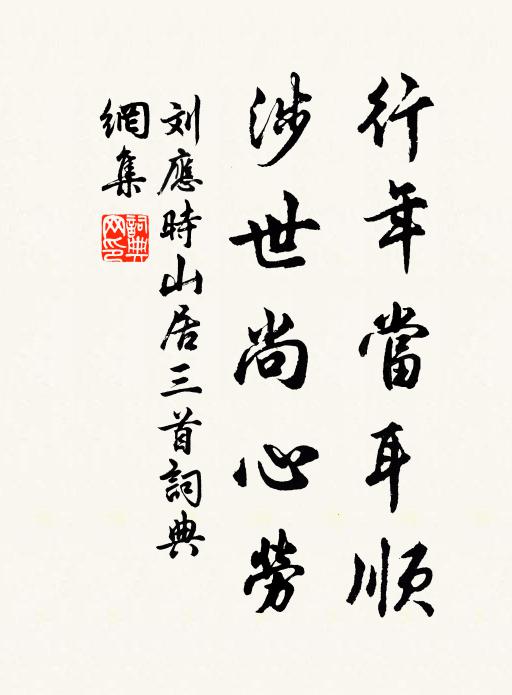 行年當耳順
涉世尚心勞
刘應時山居三首詞典
網集
詞典
网印